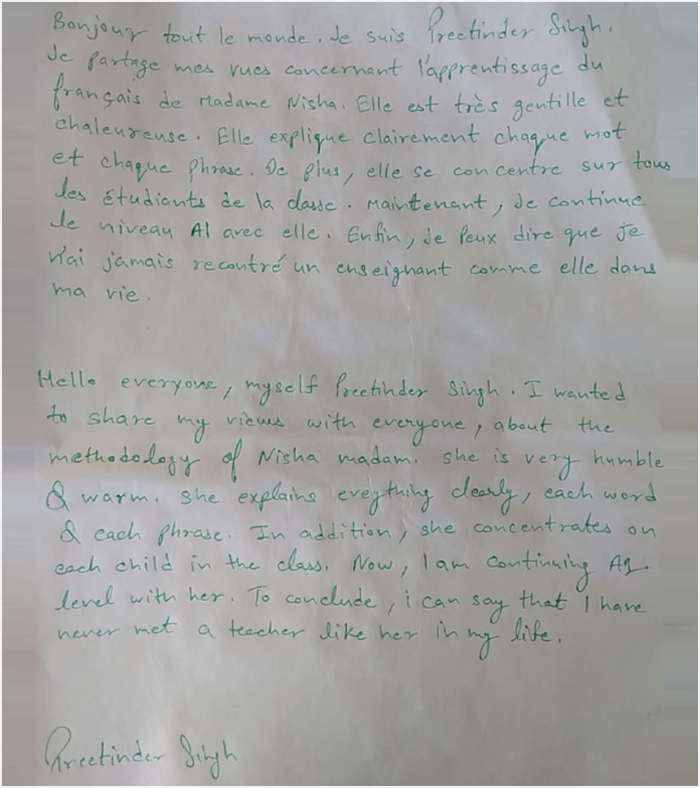 Bonjour tout le monde. Je suis Preetinder Singh.
Je partage mes vues concernant l'apprentissage du
français de Madame Nisha. Elle est très gentille et
chaleureuse. Elle explique clairement chaque mot
et chaque phrase. De plus, elle se concentre sur tous
les étudiants de la classe. Maintenant, Je continue
le niveau A1 avec elle. Enfin, Je peux dire que je
n'ai jamais recontré un enseignant comme elle dans
ma vie.
Hello everyone, myself Preetinder Singh. I wanted
to share my views with everyone, about the
methodology of Nisha madam. she is very humble
& warm. she explains eveything clearly, each word
& each phrase. In addition, she concentrates on
each child in the class. Now, I am continuing A1
level with her. To conclude, i can say that I have
never met a teacher like her in my life.
Preetinder Singh